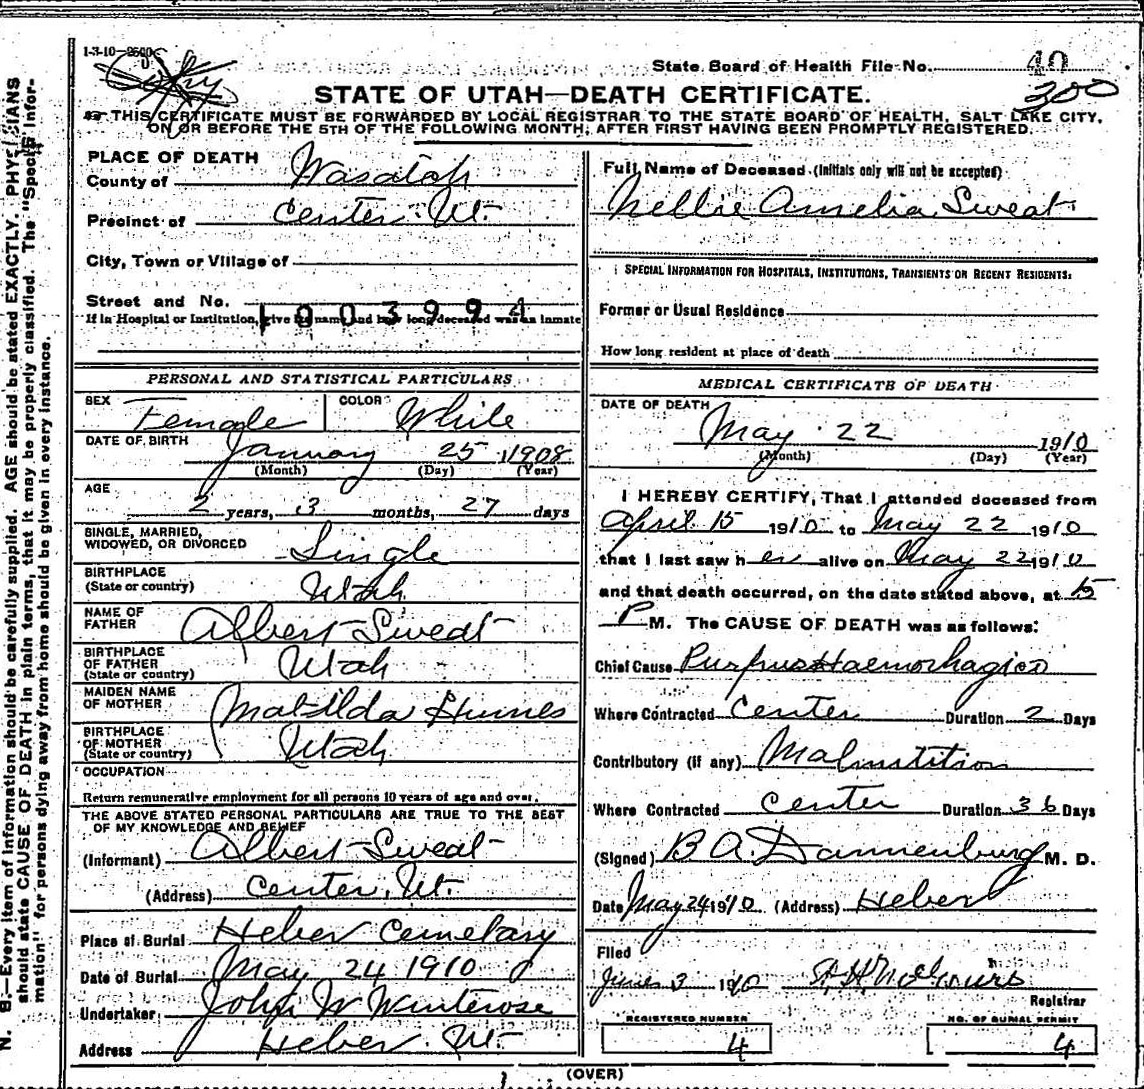 1-3-10-2500
Copy
State Board of Health File No. 40
300
STATE OF UTAH—DEATH CERTIFICATE.
THIS CERTIFICATE MUST BE FORWARDED BY LOCAL REGISTRAR TO THE STATE BOARD OF HEALTH, SALT LAKE CITY,
ON OR BEFORE THE 5TH OF THE FOLLOWING MONTH, AFTER FIRST HAVING BEEN PROMPTLY REGISTERED.
PLACE OF DEATH
County of Wasatch
Precinct of Center Ut.
City, Town or Village of
Street and No.
1003994
If in Hospital or Institution, give its name and how long deceased was an inmate
Full Name of Deceased (Initials only will not be accepted)
Nellie Amelia Sweat
SPECIAL INFORMATION FOR HOSPITALS, INSTITUTIONS, TRANSIENTS OR RECENT RESIDENTS:
Former or Usual Residence
How long resident at place of death
PERSONAL AND STATISTICAL PARTICULARS
SEX Female COLOR White
DATE OF BIRTH January 25 1908
(Month) (Day) (Year)
AGE
2 years, 3 months, 27 days
SINGLE, MARRIED,
WIDOWED, OR DIVORCED Single
BIRTHPLACE
(State or country) Utah
NAME OF
FATHER Albert Sweat
BIRTHPLACE
OF FATHER
(State or country) Utah
MAIDEN NAME
OF MOTHER Matilda
BIRTHPLACE
OF MOTHER
(State or country) Utah
OCCUPATION
Return remunerative employment for all persons 10 years of age and over.
THE ABOVE STATED PERSONAL PARTICULARS ARE TRUE TO THE BEST
OF MY KNOWLEDGE AND BELIEF
(Informant) Albert Sweat
(Address) Center, Ut.
Place of Burial Heber Cemetary
Date of Burial May 24 1910
Undertaker John W Winterose
Address Heber Ut.
MEDICAL CERTIFICATE OF DEATH
DATE OF DEATH
May 22 1910
(Month) (Day) (Year)
I HEREBY CERTIFY, That I attended deceased from
April 15 1910 to May 22 1910
that I last saw her alive on May 22 1910
and that death occurred, on the date stated above, at
P M. The CAUSE OF DEATH was as follows:
Chief Cause Haemorhagica
Where Contracted Center Duration 2 Days
Contributory (if any)
Where Contracted Center Duration 36 Days
(Signed) B A. Dannenburg M. D.
Date May 24 1910 (Address) Heber
Filed
June 3 1910
Registrar
REGISTERED NUMBER
4
NO. OF BURIAL PERMIT
4
(OVER)
N. B.—Every item of information should be carefully supplied. AGE should be stated EXACTLY. PHYSICIANS
should state CAUSE OF DEATH in plain terms, that it may be properly classified. The "Special Infor-
mation" for persons dying away from home should be given in every instance.